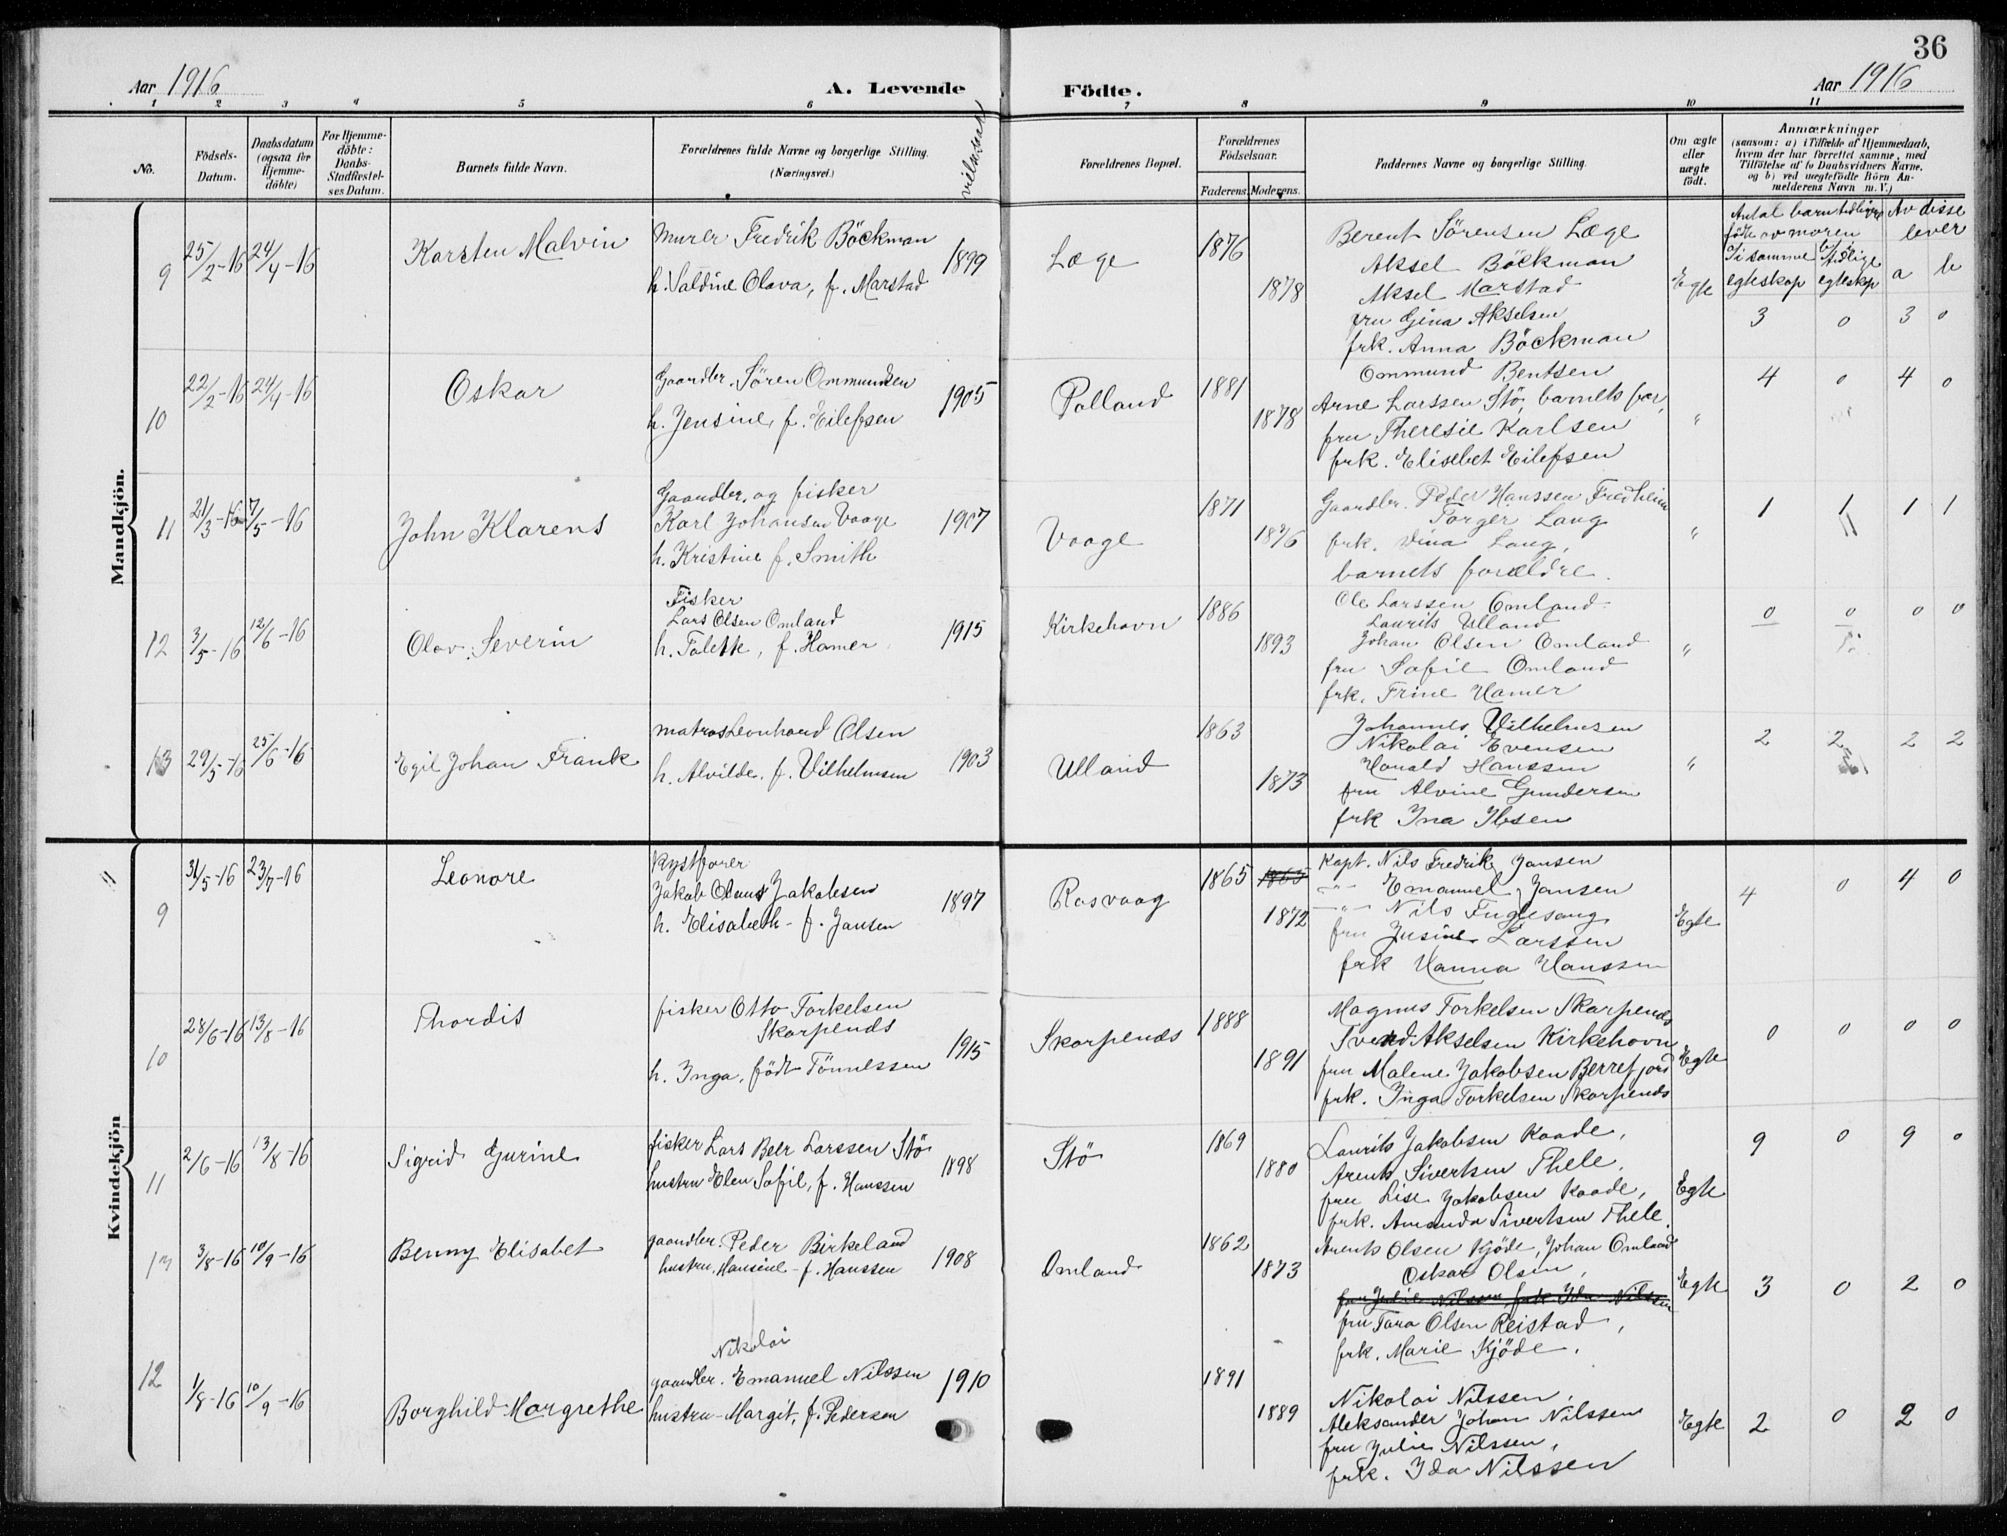 36
Aar 1916
A. Levende
Födte.
Aar 1916
1 2 3 4 5 6 7 8 9 10 11
No.
Födsels-
Datum.
Daabsdatum
(ogsaa for
Hjemme-
döbte)
For Hjemme-
döbte:
Daabs-
Stadfæstel-
ses Datum.
Barnets fulde Navn.
Forældrenes fulde Navne og borgerlige Stilling.
(Næringsvei.)
vielsesaar
Forældrenes Bopæl.
Forældrenes
Födselsaar.
Faderens.
Moderens.
Faddernes Navne og borgerlige Stilling.
Om ægte
eller
uægte
födt.
Anmærkninger
(saasom: a) i Tilfælde af Hjemmedaab,
hvem der har forrettet samme, med
Tilföielse af to Daabsvidners Navne,
og b) ved uægtefödte Börn An-
melderens Navn m. V.)
Antal barn tidligere
född av moren
Av disse
lever
a/ i samme
egteskap
b/ i tidlige
egteskap
a b
Mandkjön.
9 25/2-16 24/4-16 Karsten Malvin
murer Fredrik Böckman
h. Valdine Olava, f. Marstad
1899 Læge 1876 1878
Berent Sörensen Læge
Aksel Böckman
Aksel Marstad
fru Gina Akselsen
frk. Anna Böckman
Egte 3 0 3 0
10 22/2-16 24/4-16 Oskar
Gaardbr. Sören Ommundsen
h. Jensine, f. Eilefsen
1905 Polland 1881 1878
Ommund Bentsen
Arne Larssen Stö, barnets far,
fru Theresie Karlsen
frk. Elisebet Eilefsen
" 4 0 4 0
11 21/3-16 7/5-16 John Klarens
Gaardbr. og fisker
Karl Johansen Vaage
h. Kristine f. Smith
1907 Vaage 1871 1876
Gaardbr. Peder Hanssen Fredheim
Torger Lang
frk. Dina Lang,
barnets forældre.
" 1 1 1 1
12 3/5-16 12/6-16 Olav Severin
Fisker
Lars Olsen Omland
h. Talette, f. Hamer
1915 Kirkehavn 1886 1893
Ole Larssen Omland
Laurits Ulland
Johan Olsen Omland
fru Sofie Omland
frk. Trine Hamer
" 0 0 0 0
13 29/5-16 25/6-16 Egil Johan Frank
matros Leonhard Olsen
h. Alvilde. f. Vilhelmsen
1903 Ulland 1863 1873
Johannes Vilhelmsen
Nikolai Evensen
Harald Hanssen
fru Alvine Gundersen
frk Ina Ibsen
" 2 2 2 2
Kvindekjön
9 31/5-16 23/7-16 Leonore
Kystfarer
Jakob Olaus Jakobsen
h. Elisabeth - f. Jansen
1897 Rasvaag 1865 1865 1872
Kapt. Nils Fredrik Jansen
-"- Emanuel Jansen
-"- Nils Fuglesang
fru Jusine Larssen
frk Hanna Hanssen
Egte 4 0 4 0
10 28/6-16 13/8-16 Thordis
fisker Otto Torkelsen
Skarpends
h. Inga, födt Tönnessen
1915 Skarpends 1888 1891
Magnus Torkelsen Skarpends
Svend Akselsen Kirkehavn
fru Malene Jakobsen Berrefjord
frk. Inga Torkelsen Skarpends
Egte 0 0 0 0
11 2/6-16 13/8-16 Sigrid Gurine
fisker Lars Beer Larssen Stö
hustru Elen Sofie, f. Hanssen
1898 Stö 1869 1880
Laurits Jakobsen Raade,
Arent Sivertsen Thele,
fru Lise Jakobsen Raade,
frk. Amanda Sivertsen Thele.
Egte 9 0 9 0
13 3/8-16 10/9-16 Benny Elisabet
gaardbr. Peder Birkeland
hustru Hansine - f. Hanssen
1908 Omland 1862 1873
Arent Olsen Kjöde, Johan Omland
Oskar Olsen,
fru Julie Nilssen frk Ida Nilssen
fru Tara Olsen Reistad,
frk. Marie Kjöde.
Egte 3 0 2 0
12 1/8-16 10/9-16 Borghild Margrethe
Nikolai
gaardbr. Emanuel Nilssen
hustru - Margit, f. Pedersen
1910 1891 1889
Nikolai Nilssen,
Aleksander Johan Nilssen
fru Julie Nilssen,
frk. Ida Nilssen
Egte 2 0 2 0